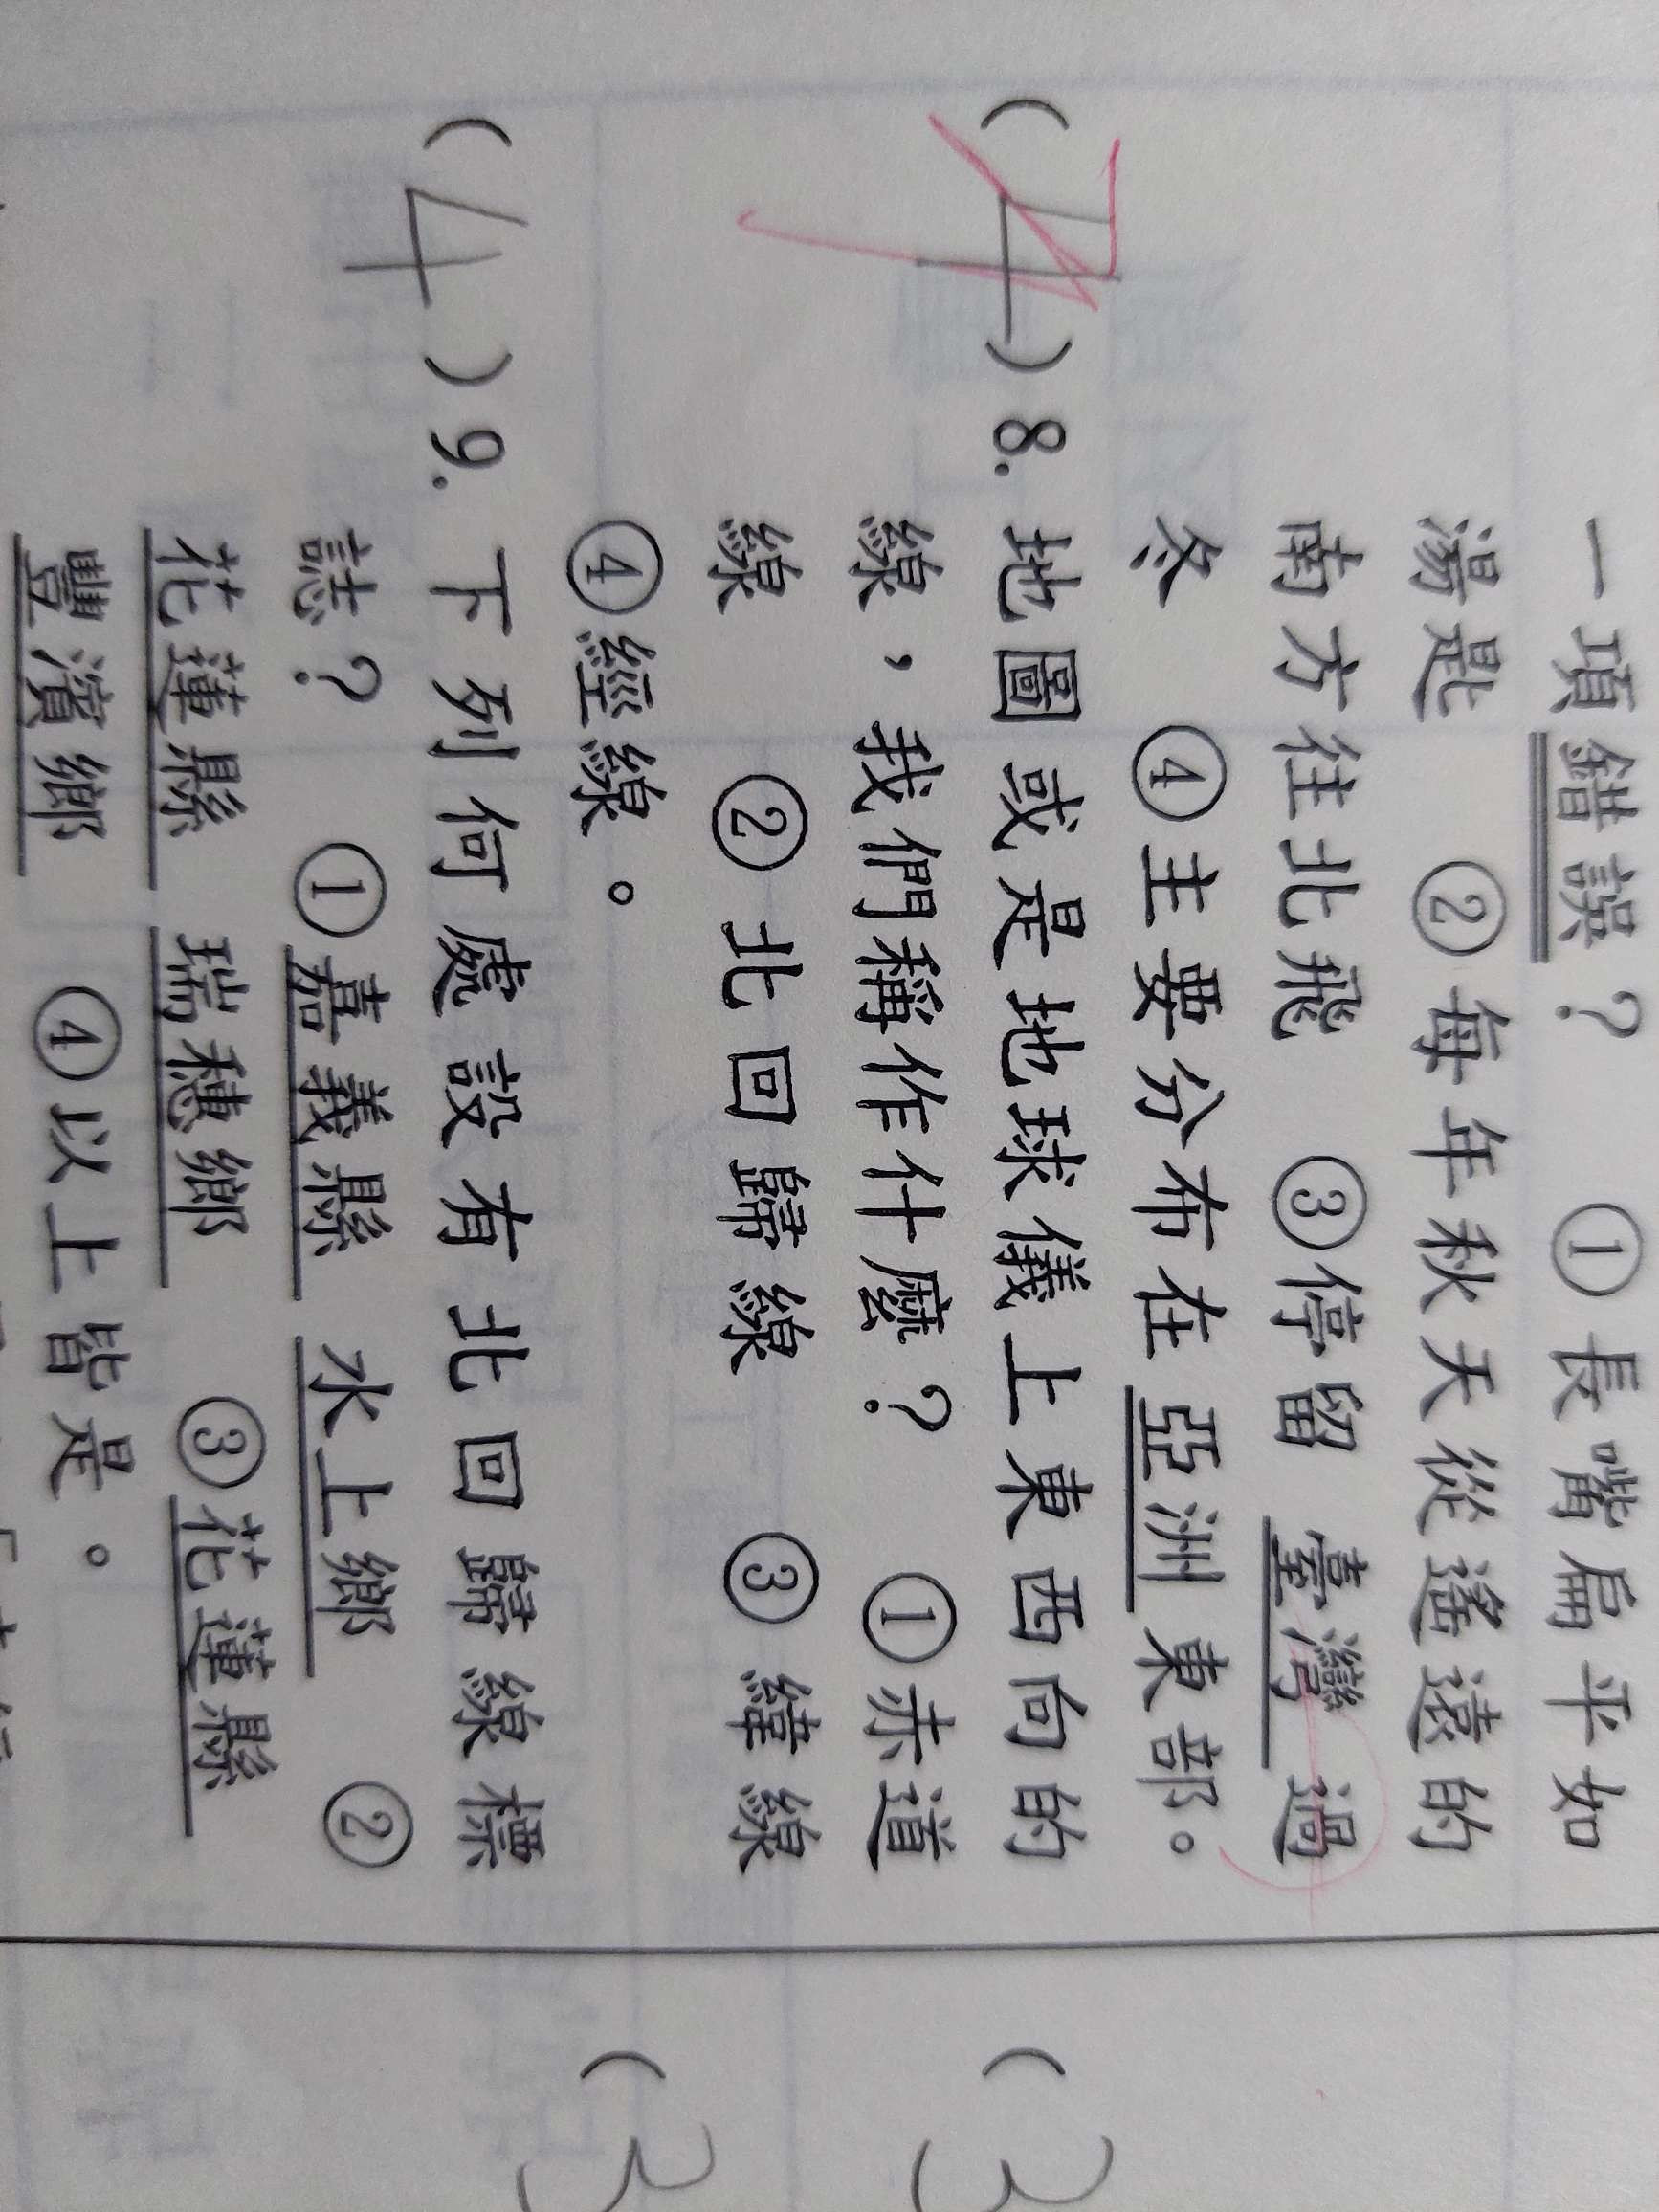 一項錯誤？ ①長嘴扁平如
湯匙 ②每年秋天從遙遠的
南方往北飛 ③停留臺灣過
冬 ④主要分布在亞洲東部。
(4)8.地圖或是地球儀上東西向的
線，我們稱作什麼？ ①赤道
線 ②北回歸線 ③緯線
④經線。
(4)9.下列何處設有北回歸線標
誌？ ①嘉義縣 水上鄉 ②
花蓮縣 瑞穗鄉 ③花蓮縣
豐濱鄉 ④以上皆是。
(3
(3